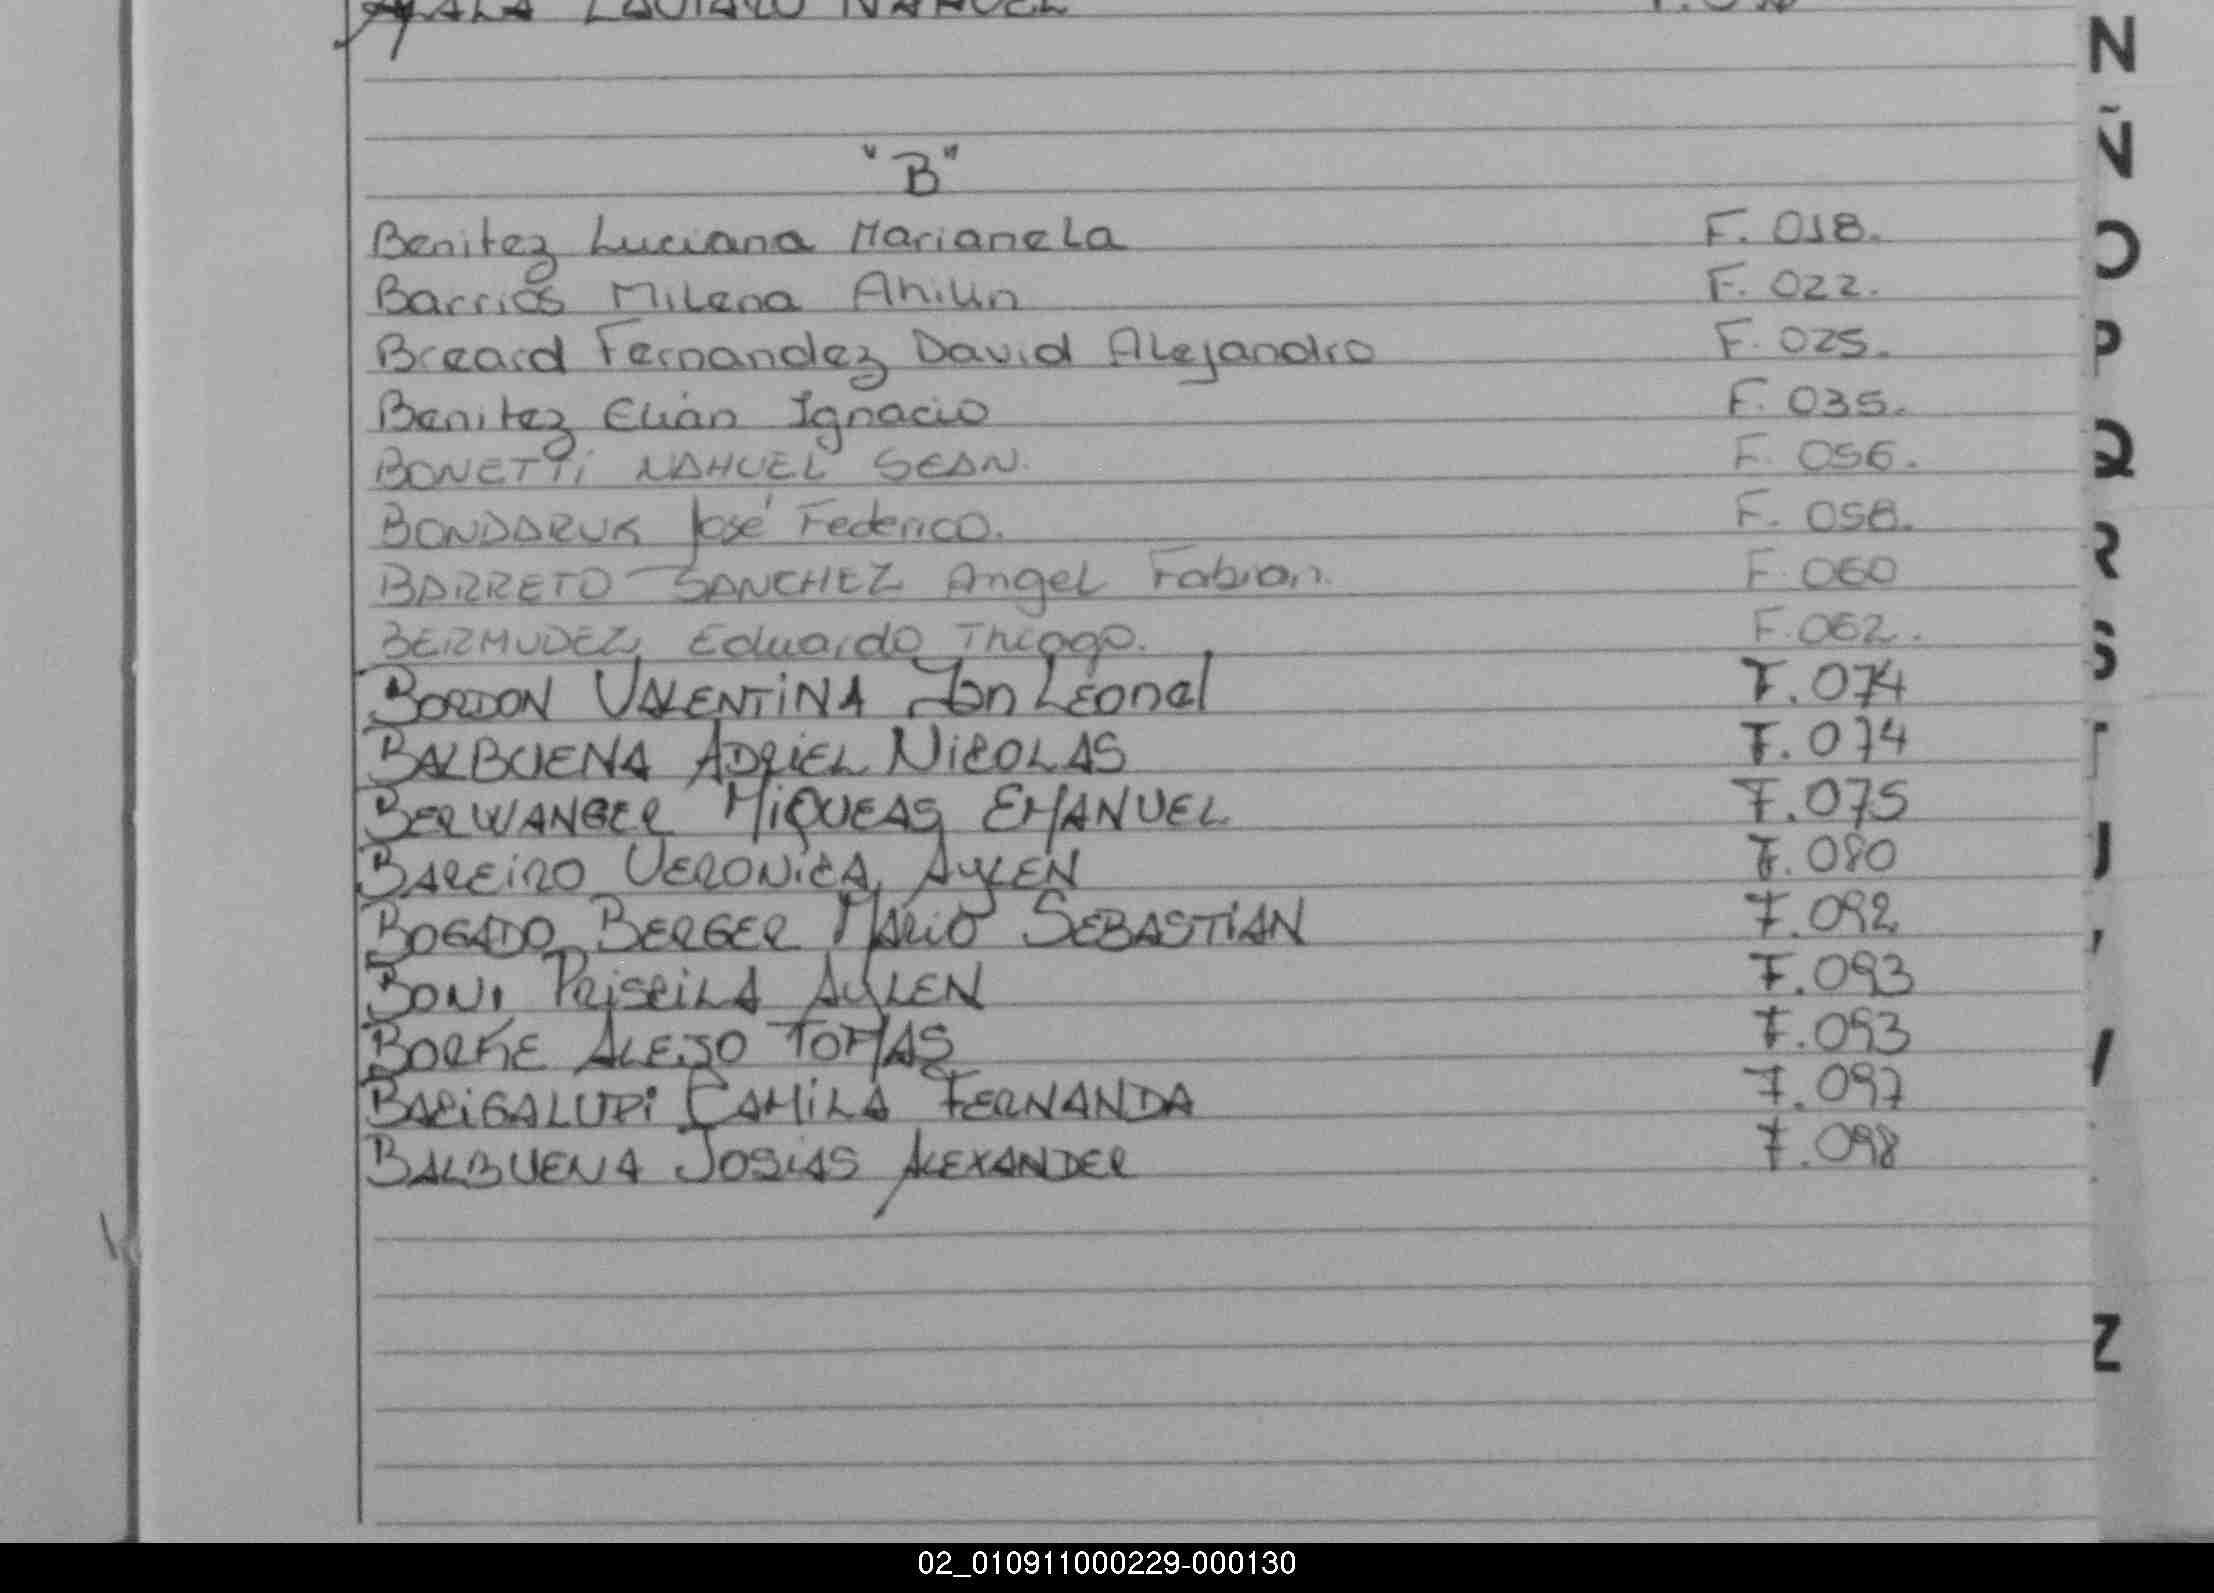 "B"
Benitez Luciana Marianela F. 018.
Barrios Milena Ahilin F. 022.
Breard Fernandez David Alejandro F. 025.
Benitez Elián Ignacio F. 035.
BONETTi NAHUEL SEAN. F. 056.
BONDARUK José Federico. F. 058.
BARRETO SANCHEZ Angel Fabian. F. 060
BERMUDEZ, Eduardo Thiago. F. 062.
BORDON VALENTiNA Leonel F. 074
BALBUENA ADRIEL NiCOLAS F. 074
BERWANGER MiQUEAS EMANUEL F. 075
BAREiRO VERONiCA AYLEN F. 080
BOGADO BERGER MARiO SEBASTiAN F. 092
BONi PRiSCiLA AYLEN F. 093
BORKE ALEJO TOMAS F. 093
BARiGALUPi CAMiLA FERNANDA F. 097
BALBUENA JOSiAS ALEXANDER F. 098
N
Ñ
O
P
Q
R
S
Z
02_010911000229-000130